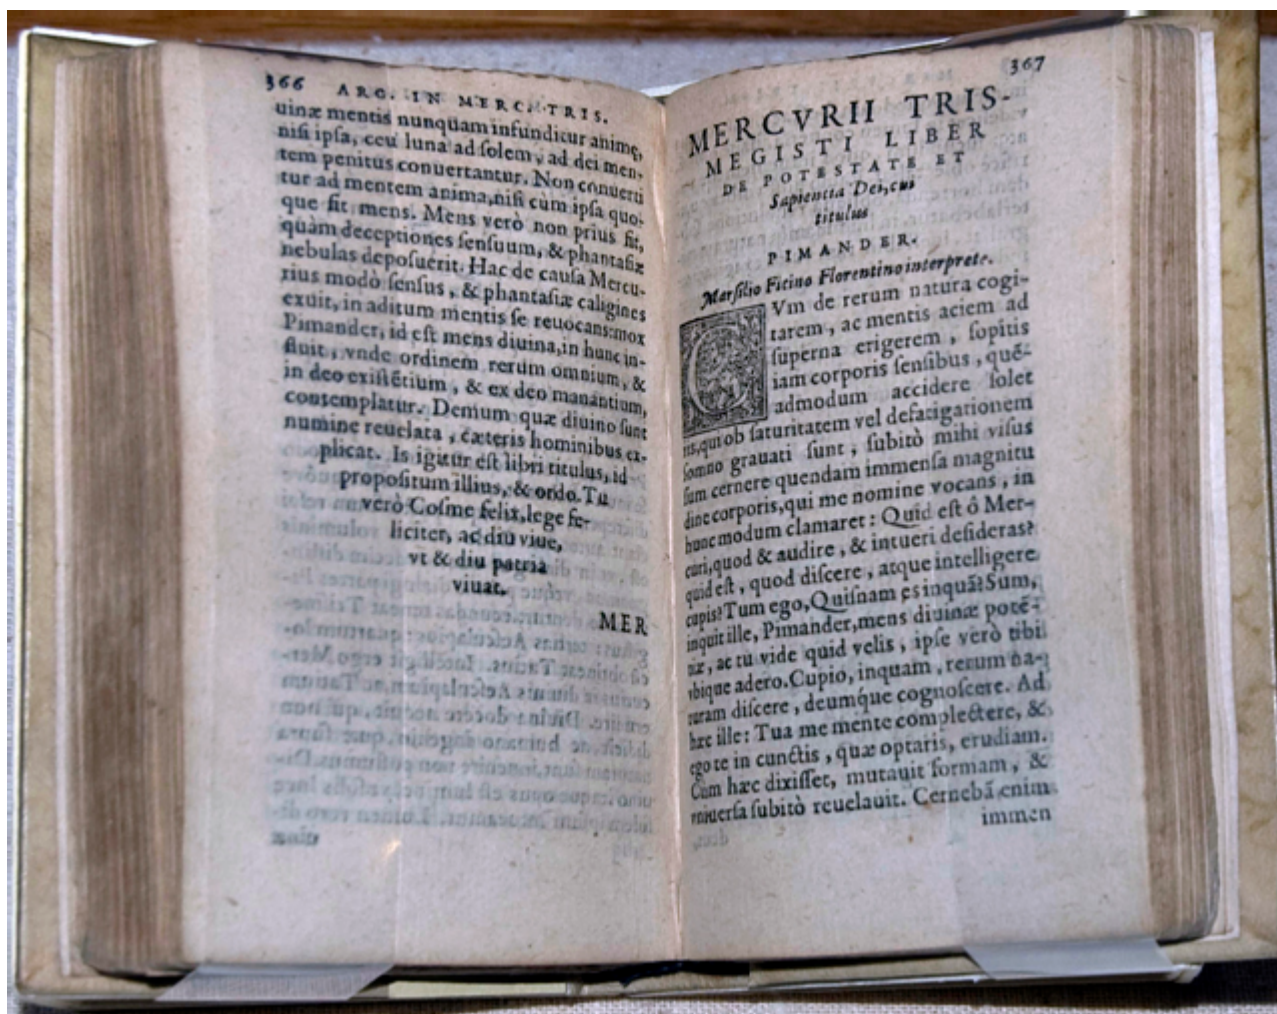 366 ARG. IN MERC. TRIS.
uinæ mentis nunquam infunditur animę,
nisi ipsa, ceu luna ad solem, ad dei men-
tem penitus conuertantur. Non conuerti
tur ad mentem anima, nisi cùm ipsa quo-
que fit mens. Mens verò non prius fit,
quàm deceptiones sensuum, & phantasiæ
nebulas deposuerit. Hac de causa Mercu-
rius modò sensus, & phantasiæ caligines
exuit, in aditum mentis se reuocans: mox
Pimander, id est mens diuina, in hunc in-
fluit, vnde ordinem rerum omnium, &
in deo existẽtium, & ex deo manantium,
contemplatur. Demum quæ diuino sunt
numine reuelata, cæteris hominibus ex-
plicat. Is igitur est libri titulus, id
propositum illius, & ordo. Tu
verò Cosme felix, lege fe-
liciter, ac diu viue,
vt & diu patria
viuat.
MER
367
MERCVRII TRIS-
MEGISTI LIBER
DE POTESTATE ET
Sapientia Dei, cui
titulus
PIMANDER.
Marsilio Ficino Florentino interprete.
CVm de rerum natura cogi-
tarem, ac mentis aciem ad
superna erigerem, sopitis
iam corporis sensibus, quẽ-
admodum accidere solet
iis, qui ob saturitatem vel defatigationem
somno grauati sunt, subitò mihi visus
sum cernere quendam immensa magnitu
dine corporis, qui me nomine vocans, in
hunc modum clamaret: Quid est ô Mer-
curi, quod & audire, & intueri desideras?
quid est, quod discere, atque intelligere
cupis? Tum ego, Quisnam es inquã? Sum,
inquit ille, Pimander, mens diuinæ potẽ-
tiæ, ac tu vide quid velis, ipse verò tibi
vbique adero. Cupio, inquam, rerum na-
turam discere, deumq́ue cognoscere. Ad
hæc ille: Tua me mente complectere, &
ego te in cunctis, quæ optaris, erudiam.
Cùm hæc dixisset, mutauit formam, &
vniuersa subitò reuelauit. Cernebã enim
immen